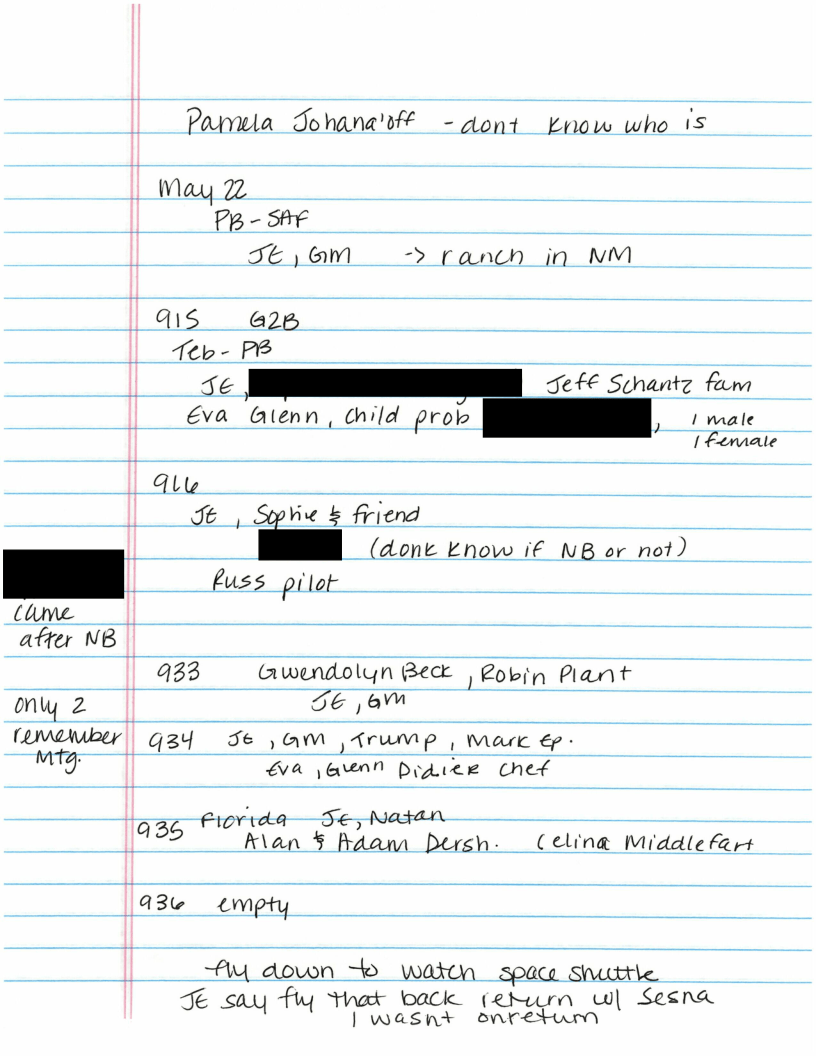 Pamela Johana'off - dont know who is
May 22
PB - SAF
JE, GM -> ranch in NM
915 G2B
Teb - PB
JE, Jeff Schantz fam
Eva Glenn, child prob , 1 male
1 female
916
JE, Sophie & friend
(dont know if NB or not)
Russ pilot
came
after NB
933 Gwendolyn Beck, Robin Plant
JE, GM
only 2
remember
Mtg.
934 JE, GM, Trump, Mark Ep.
Eva, Glenn Didier chef
935 Florida JE, Natan
Alan & Adam Dersh. Celina Middlefart
936 empty
fly down to watch space shuttle
JE say fly that back return w/ Sesna
I wasnt on return